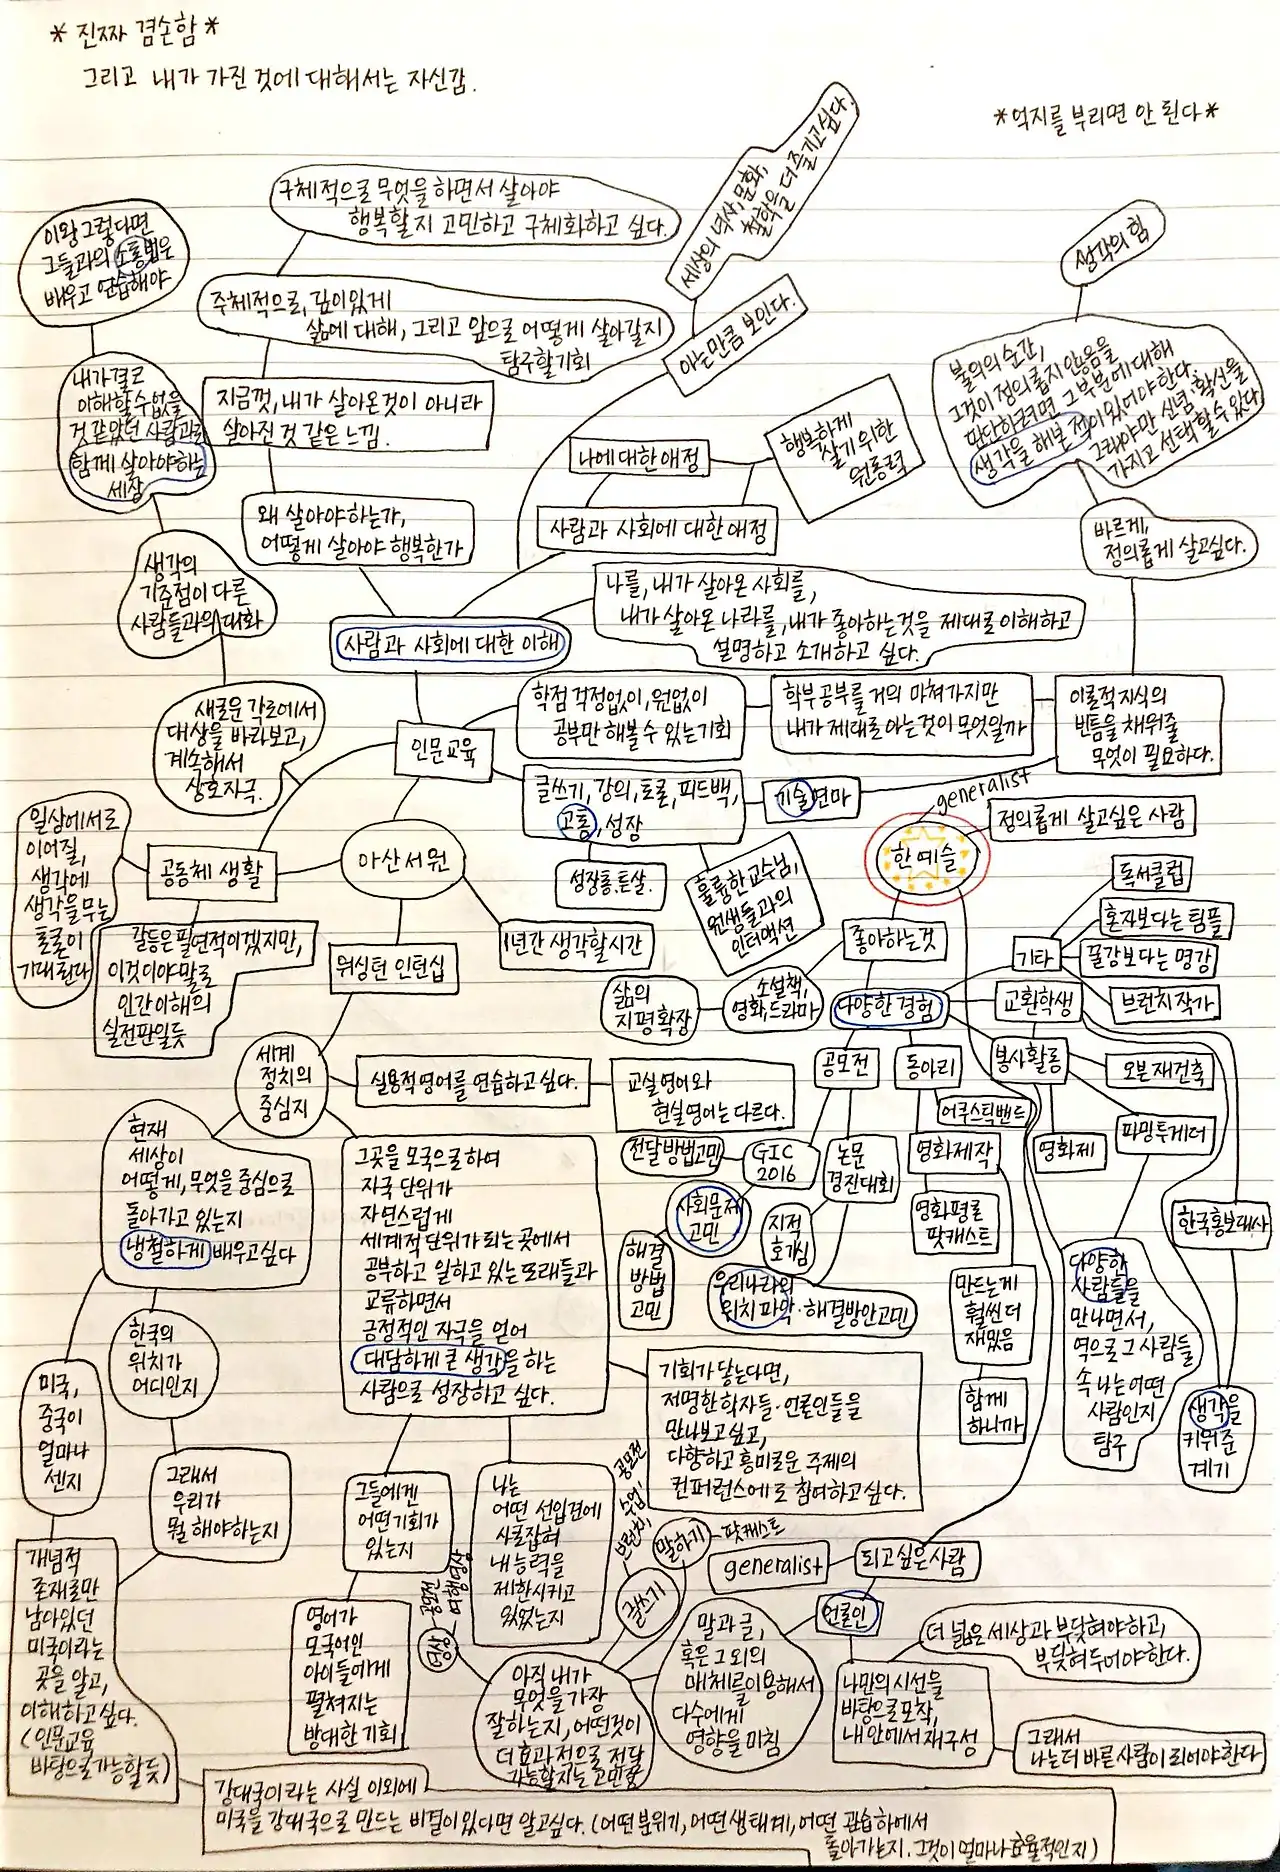 *진짜 겸손함*
그리고 내가 가진 것에 대해서는 자신감.
*억지를 부리면 안 된다*
구체적으로 무엇을 하면서 살아야
행복할지 고민하고 구체화하고 싶다.
세상의 역사, 문화,
철학을 더 즐기고 싶다.
아는만큼 보인다.
생각의 힘
이왕 그렇다면
그들과의 소통법은
배우고 연습해야
주체적으로, 깊이있게
삶에 대해, 그리고 앞으로 어떻게 살아갈지
탐구할기회
불의의 순간,
그것이 정의롭지 않음을
판단하려면 그 부분에 대해
생각을 해본 적이 있어야 한다.
그래야만 신념·확신을
가지고 선택할 수 있다
내가 결코
이해할 수 없을
것 같았던 사람과도
함께 살아야하는
세장
지금껏, 내가 살아온것이 아니라
살아진 것 같은 느낌.
나에 대한 애정
행복하게
살기 위한
원동력
왜 살아야하는가,
어떻게 살아야 행복한가
사람과 사회에 대한 애정
바르게,
정의롭게 살고싶다.
생각의
기준점이 다른
사람들과의 대화
사람과 사회에 대한 이해
나를, 내가 살아온 사회를,
내가 살아온 나라를, 내가 좋아하는것을 제대로 이해하고
설명하고 소개하고 싶다.
새로운 각도에서
대상을 바라보고,
계속해서
상호자극.
인문교육
학점 걱정없이, 원없이
공부만 해볼 수 있는 기회
학부 공부를 거의 마쳐가지만
내가 제대로 아는것이 무엇일까
이론적 지식의
빈틈을 채워줄
무엇이 필요하다.
글쓰기, 강의, 토론, 피드백,
고통, 성장
기술연마
generalist
한예슬
정의롭게 살고싶은 사람
일상에서도
이어질,
생각에
생각을 무는
토론이
기대된다
공동체 생활
아산서원
성장통.튼살.
훌륭한 교수님,
원생들과의
인터액션
좋아하는것
독서클럽
혼자보다는 팀플
기타
꿀강보다는 명강
브런치작가
갈등은 필연적이겠지만,
이것이야말로
인간이해의
실전판일듯
워싱턴 인턴십
1년간 생각할시간
삶의
지평확장
소설책,
영화,드라마
다양한경험
교환학생
세계
정치의
중심지
실용적영어를 연습하고싶다.
교실영어와
현실영어는 다르다.
공모전
동아리
봉사활동
오븐재건축
어쿠스틱밴드
전달방법고민
GIC
2016
논문
경진대회
영화제작
영화제
파밍투게더
현재
세상이
어떻게, 무엇을 중심으로
돌아가고 있는지
냉철하게 배우고싶다
그곳을 모국으로하여
자국 단위가
자연스럽게
세계적단위가 되는 곳에서
공부하고 일하고 있는 또래들과
교류하면서
긍정적인 자극을 얻어
대담하게 큰 생각을 하는
사람으로 성장하고 싶다.
사회문제
고민
지적
호기심
영화평론
팟캐스트
한국홍보대사
해결
방법
고민
우리나라의
위치파악·해결방안고민
만드는게
훨씬더
재밌음
다양한
사람들을
만나면서,
역으로 그 사람들
속 나는 어떤
사람인지
탐구
한국의
위치가
어디인지
미국,
중국이
얼마나
센지
기회가 닿는다면,
저명한 학자들·언론인들을
만나보고싶고,
다양하고 흥미로운 주제의
컨퍼런스에도 참여하고싶다.
함께
하니까
생각을
키워준
계기
그래서
우리가
뭘 해야하는지
그들에겐
어떤기회가
있는지
나는
어떤 선입견에
사로잡혀
내능력을
제한시키고
있었는지
브런치, 수업, 공모전
말하기
팟캐스트
generalist
되고싶은사람
글쓰기
언론인
개념적
존재로만
남아있던
미국이라는
곳을 알고,
이해하고싶다.
(인문교육
바탕으로가능할듯)
영어가
모국어인
아이들에게
펼쳐지는
방대한기회
영상
공모전
여행영상
아직 내가
무엇을가장
잘하는지, 어떤것이
더 효과적으로 전달
가능할지는 고민중
말과 글,
혹은 그 외의
매체를이용해서
다수에게
영향을 미침
더 넓은 세상과 부딪혀야하고,
부딪혀두어야한다.
나만의시선을
바탕으로포착,
내 안에서 재구성
그래서
나는더 바른사람이되어야한다
강대국이라는 사실 이외에
미국을 강대국으로 만드는 비결이있다면 알고싶다. (어떤분위기, 어떤생태계, 어떤 관습하에서
돌아가는지. 그것이 얼마나효율적인지)